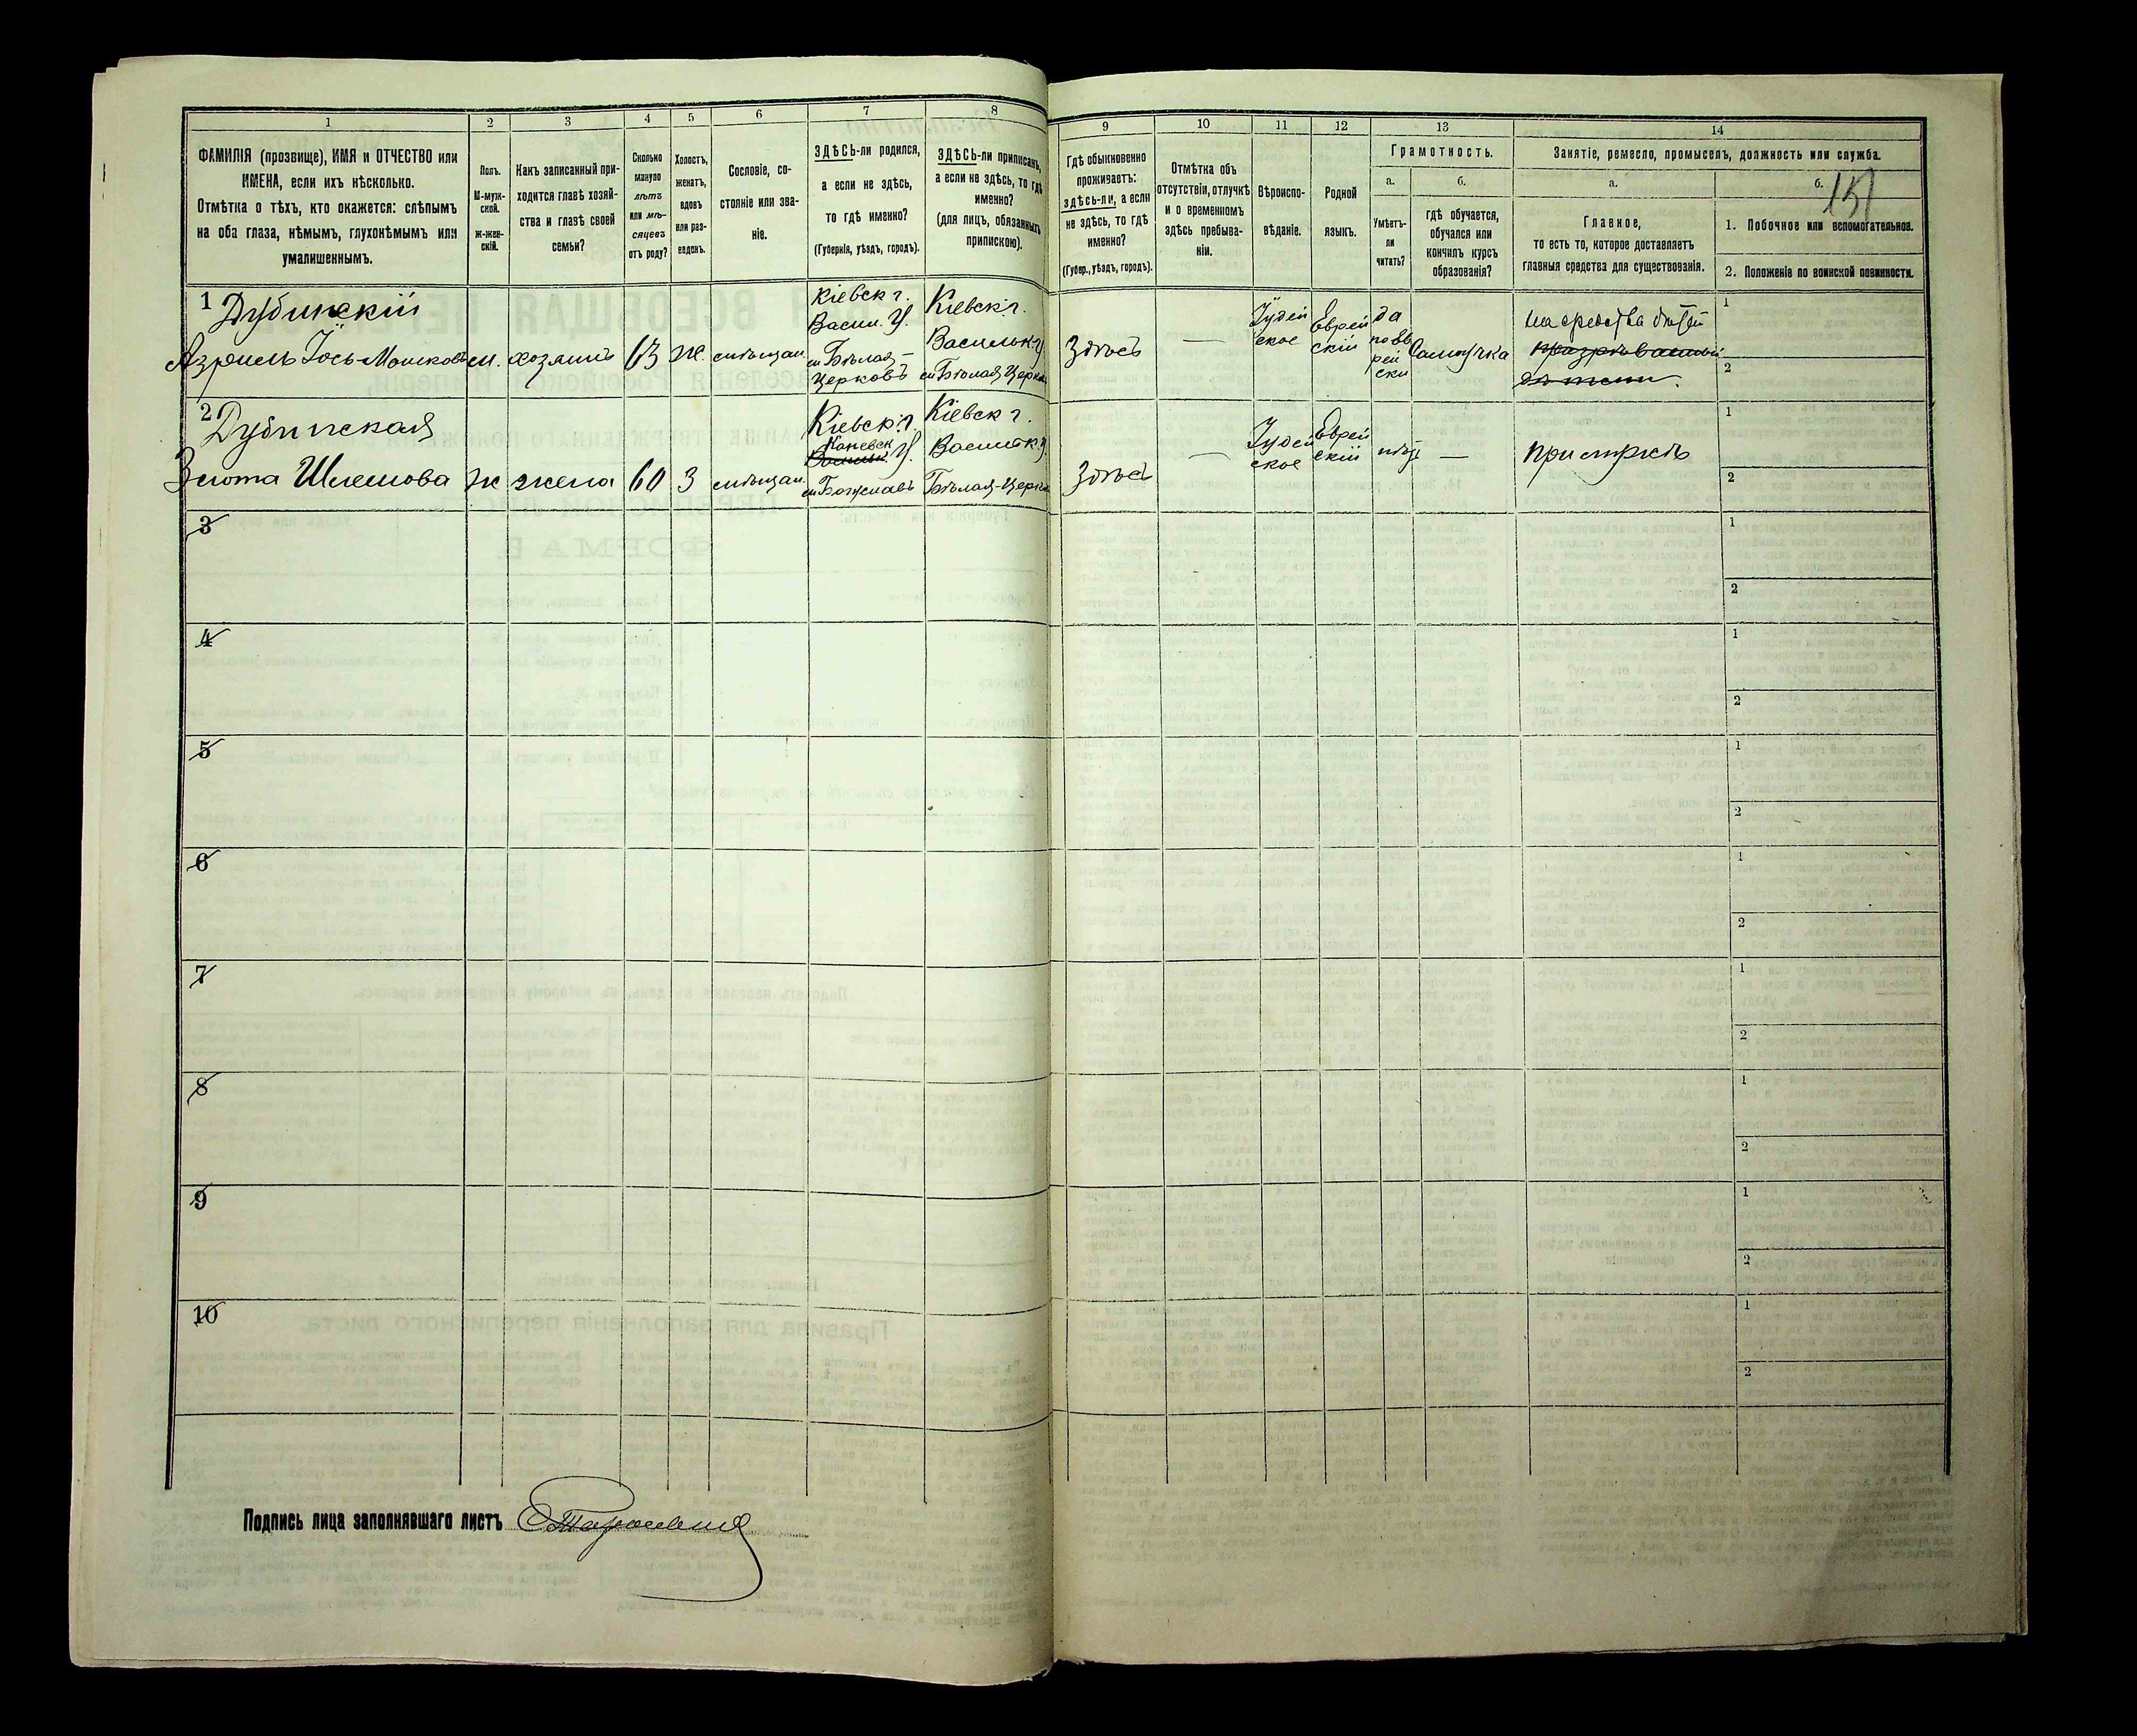 1 2 3 4 5 6 7 8 9 10 11 12 13 14
ФАМИЛІЯ (прозвище), ИМЯ и ОТЧЕСТВО или
ИМЕНА, если ихъ нѣсколько.
Отмѣтка о тѣхъ, кто окажется: слѣпымъ
на оба глаза, нѣмымъ, глухонѣмымъ или
умалишеннымъ.
Полъ.
М-муж-
ской.
Ж-жен-
скій.
Какъ записанный при-
ходится главѣ хозяй-
ства и главѣ своей
семьи?
Сколько
минуло
лѣтъ
или мѣ-
сяцевъ
отъ роду?
Холостъ,
женатъ,
вдовъ
или раз-
веденъ.
Сословіе, со-
стояніе или зва-
ніе.
ЗДѢСЬ-ли родился,
а если не здѣсь,
то гдѣ именно?
(Губернія, уѣздъ, городъ).
ЗДѢСЬ-ли приписанъ,
а если не здѣсь, то гдѣ
именно?
(для лицъ, обязанныхъ
припискою).
Гдѣ обыкновенно
проживаетъ:
здѣсь-ли, а если
не здѣсь, то гдѣ
именно?
(Губер., уѣздъ, городъ).
Отмѣтка объ
отсутствіи, отлучкѣ
и о временномъ
здѣсь пребыва-
ніи.
Вѣроиспо-
вѣданіе.
Родной
языкъ.
Грамотность.
а.
Умѣетъ-
ли
читать?
б.
гдѣ обучается,
обучался или
кончилъ курсъ
образованія?
Занятіе, ремесло, промыселъ, должность или служба.
а.
Главное,
то есть то, которое доставляетъ
главныя средства для существованія.
б.
151
1. Побочное или вспомогательное.
2. Положеніе по воинской повинности.
1 Дубинскій
Азриель Іось-Мошковъ
м.
хозяинъ
63
ж.
мѣщан.
Кіевск г.
Васил. У.
м Бѣлая-
Церковъ
Кіевск: г.
Васильк: У
м Бѣлая Церковъ
Здѣсь
—
Іудей
ское
Еврей
скій
да
по ев
рей
ски
Самоучка
на средства дѣтей
1
2
2 Дубинская
Злота Шлемова
ж
жена
60
З
мѣщан.
Кіевск: г.
Каневск
У.
м Богуславъ
Кіевск г.
Васильк. У.
Бѣлая-Церковъ
Здѣсь
—
Іудей
ское
Еврей
скій
нѣтъ
—
при мужѣ
1
2
3
1
2
4
1
2
5
1
2
6
1
2
7
1
2
8
1
2
9
1
2
10
1
2
Подпись лица заполнявшаго листъ